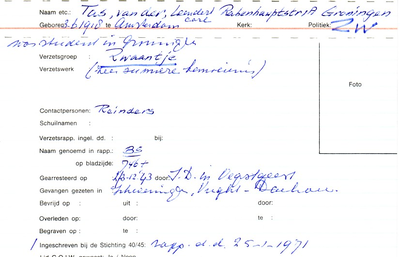 Naam etc.: Tas, van der, Leendert Rabenhauptstr 1A Groningen
Gebore: 3.6.1918 te Amsterdam Kerk: Politiek:
ZW
was student in Groningen
Verzetsgroep: Zwaantje
Verzetswerk (zeer summiere
Foto
Contactpersonen: Reinders
Schuilnaam :
Verzetsrapp. ingel. dd. : bij:
Naam genoemd in rapp.: BS
op bladzijde:
Gearresteerd op 12 '43 door S.D. in Oegstgeest
Gevangen gezeten in: Scheveningen, Vught - Dachau
Bevrijd op : uit : door:
Overleden op: door: te :
Begraven op : te :
Ingeschreven bij de Stichting 40/45: rapp. d.d. 25-1-1971